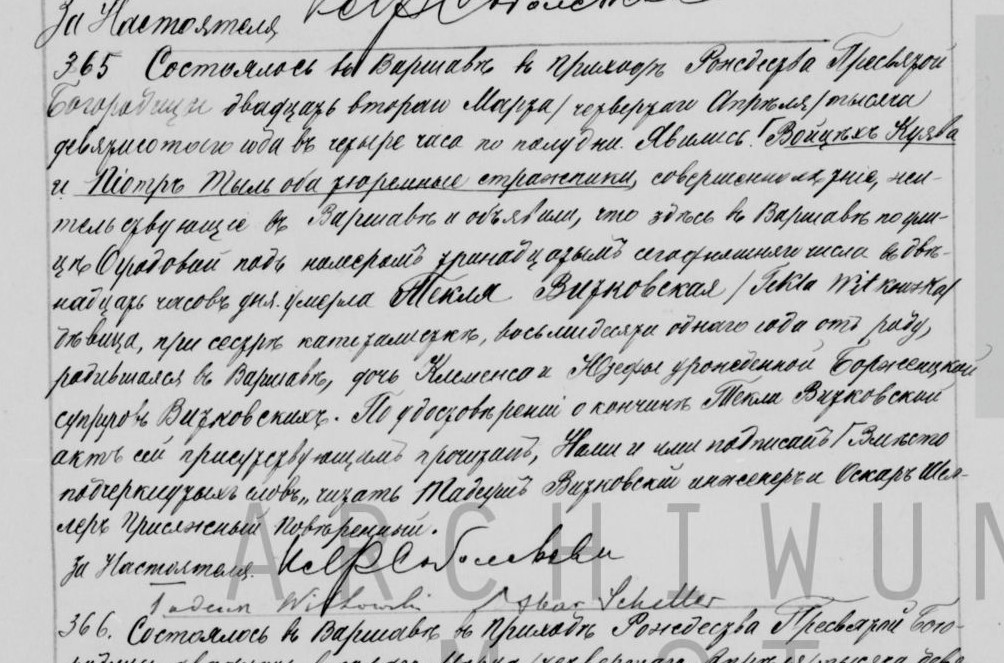 За Настоятеля
365 Состоялось въ Варшавѣ въ приходѣ Рождества Пресвятой
Богородицы двадцать втораго Марта / четвертаго Апрѣля / тысяча
девятисотого года въ четыре часа по полудни. Явились: Войцѣхъ Куява
и Піотръ Тыль оба тюремные стражники, совершеннолѣтніе, жи-
тельствующіе въ Варшавѣ и объявили, что здѣсь въ Варшавѣ по ули-
цѣ Огродовой подъ номеромъ тринадцатымъ сегодняшняго числа въ двѣ-
надцать часовъ дня умерла Текля Витковская / Tekla Witkowska /
дѣвица, при сестрѣ, восьмидесяти одного года отъ роду,
родившаяся въ Варшавѣ, дочь Клеменса и Юзефы урожденной
супруговъ Витковскихъ. По удостовѣреніи о кончинѣ Текли Витковской
актъ сей присутствующимъ прочитанъ, Нами и ими подписанъ / Вмѣсто
подчеркнутыхъ словъ „читать Тадеушъ Витковскій инженеръ и Оскаръ Шел-
леръ Присяжный Повѣренный.
За Настоятеля
Tadeusz Witkowski Oskar Scheller
ARCHIWUM
366. Состоялось въ Варшавѣ въ приходѣ Рождества Пресвятой Бого-